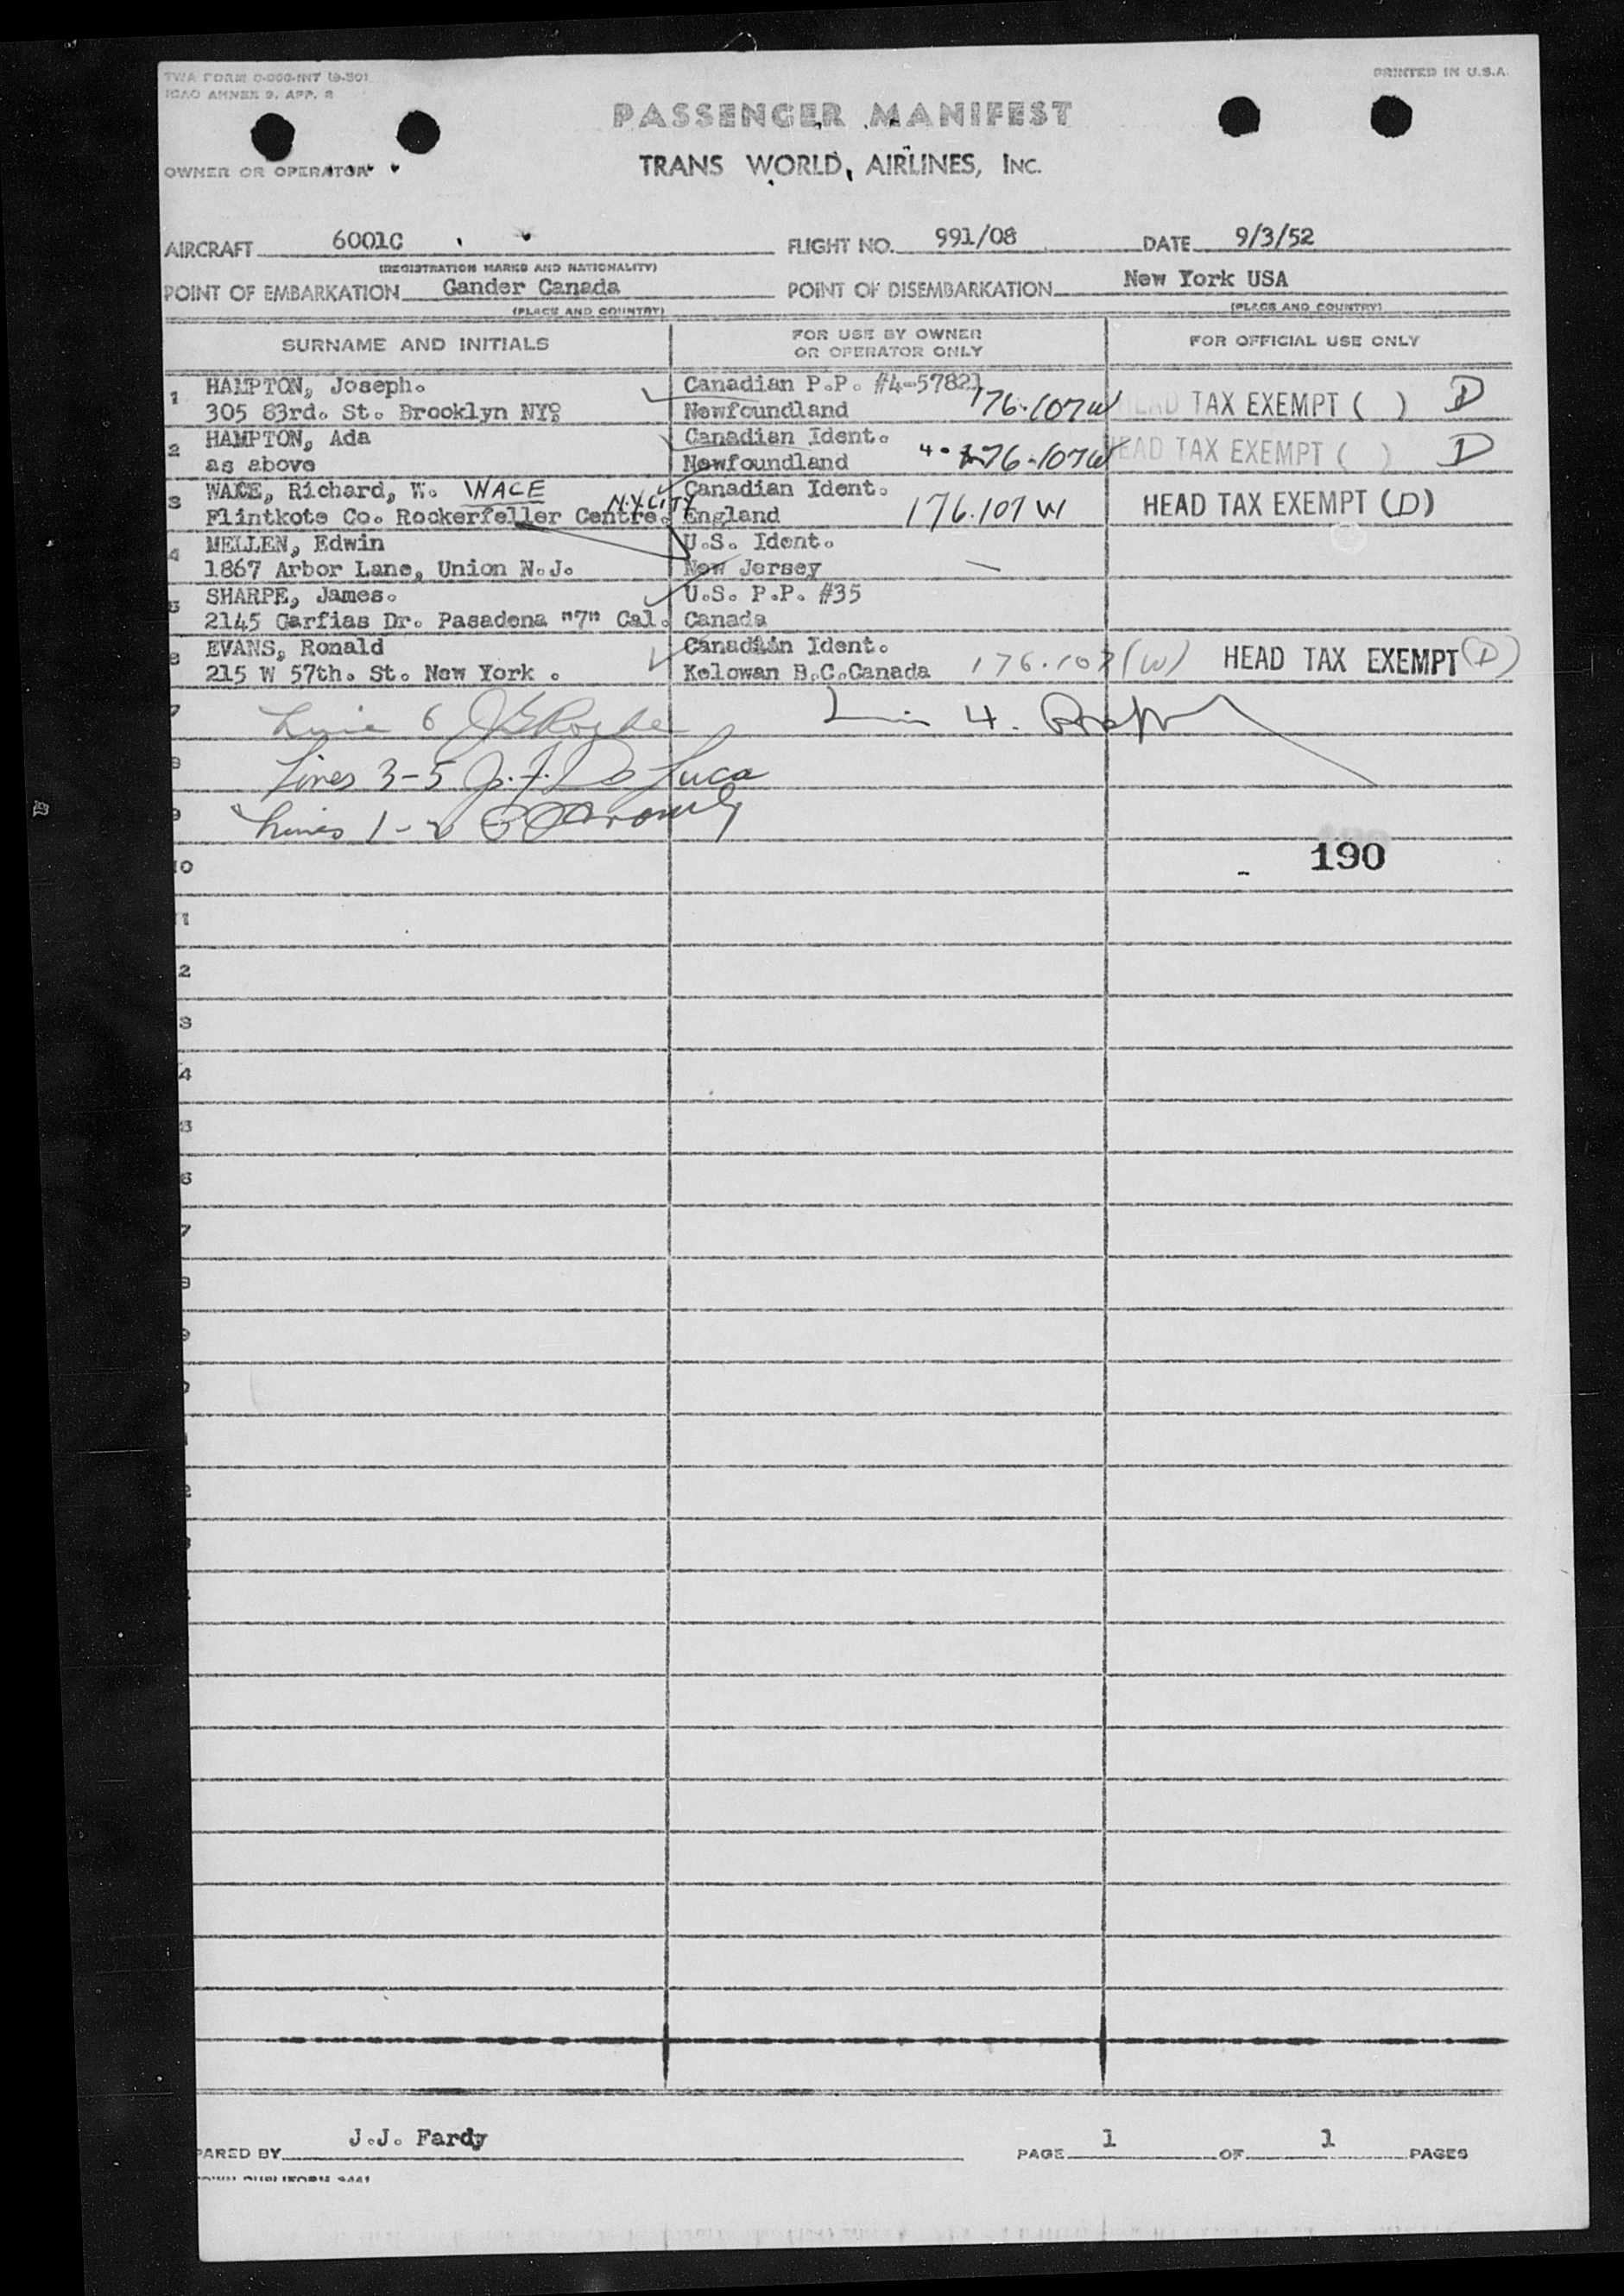 TWA FORM O-000-INT (9-50)
ICAO ANNEX 9, APP. 2
PRINTED IN U.S.A.
PASSENGER MANIFEST
TRANS WORLD AIRLINES, INC.
OWNER OR OPERATOR
AIRCRAFT 6001C FLIGHT NO. 991/08 DATE 9/3/52
(REGISTRATION MARKS AND NATIONALITY)
POINT OF EMBARKATION Gander Canada POINT OF DISEMBARKATION New York USA
(PLACE AND COUNTRY) (PLACE AND COUNTRY)
SURNAME AND INITIALS FOR USE BY OWNER OR OPERATOR ONLY FOR OFFICIAL USE ONLY
1 HAMPTON, Joseph. Canadian P.P. #4-57821
305 83rd. St. Brooklyn NY Newfoundland 176.107W HEAD TAX EXEMPT ( ) D
2 HAMPTON, Ada Canadian Ident.
as above Newfoundland 4. 176-107W HEAD TAX EXEMPT ( ) D
3 Richard, W. WACE Canadian Ident.
Flintkote Co. Rockerfeller Centre. N.Y.CITY England 176.107 W HEAD TAX EXEMPT (D)
4 MELLEN, Edwin U.S. Ident.
1867 Arbor Lane, Union N.J. New Jersey —
5 SHARPE, James. U.S. P.P. #35
2145 Garfias Dr. Pasadena "7" Cal. Canada
6 EVANS, Ronald Canadian Ident.
215 W 57th. St. New York . Kelowan B.C.Canada 176.107(W) HEAD TAX EXEMPT (D)
7 Line 6 Line 4.
8 Lines 3-5 J. F. De Luca
9 Lines 1-2
190
10
11
2
3
4
5
6
7
8
9
PARED BY J.J. Fardy PAGE 1 OF 1 PAGES